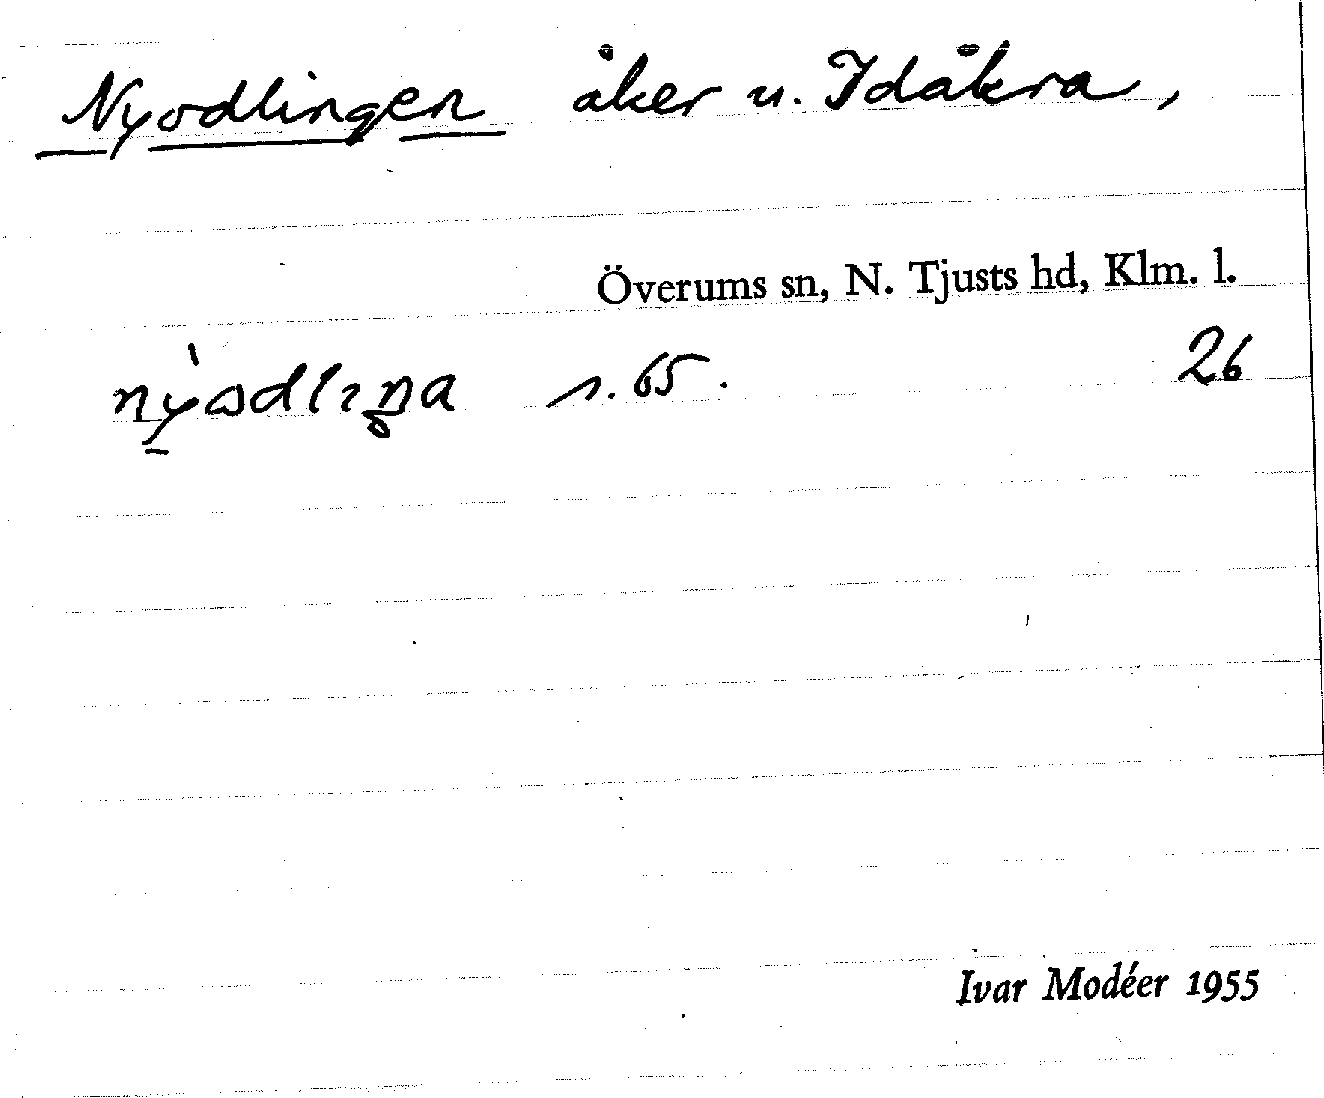 Nyodlingen åker u. Idåkra,
Överums sn, N. Tjusts hd, Klm. l.
s. 65. 26
Ivar Modéer 1955